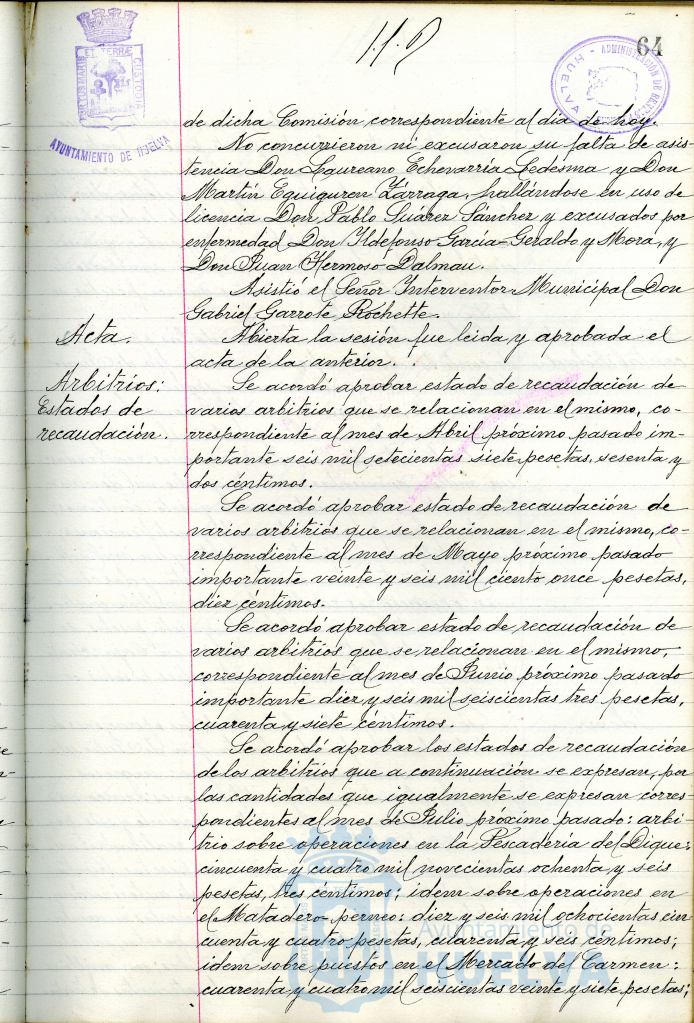 64
PORTUS MARIS ET TERRÆ CUSTODIA
AYUNTAMIENTO DE HUELVA
ADMINISTRACIÓN DE
HUELVA
de dicha Comisión correspondiente al día de hoy.
No concurrieron ni excusaron su falta de asis-
tencia Don Laureano Echevarría Ledesma y Don
Martín Equiguren Zárraga, hallándose en uso de
licencia Don Pablo Suárez Sánchez y excusados, por
enfermedad Don Ildefonso García-Geraldo y Mora, y
Don Juan Hermoso Dalmau.
Asistió el Señor Interventor Municipal Don
Gabriel Garrote Rochette.
Acta.
Abierta la sesión fue leida y aprobada el
acta de la anterior.
Arbitrios:
Estados de
recaudación.
Se acordó aprobar estado de recaudación de
varios arbitrios que se relacionan en el mismo, co-
rrespondiente al mes de Abril próximo pasado im-
portante seis mil setecientas siete pesetas, sesenta y
dos céntimos.
Se acordó aprobar estado de recaudación de
varios arbitrios que se relacionan en el mismo, co-
rrespondiente al mes de Mayo próximo pasado
importante veinte y seis mil ciento once pesetas,
diez céntimos.
Se acordó aprobar estado de recaudación de
varios arbitrios que se relacionan en el mismo,
correspondiente al mes de Junio próximo pasado
importante diez y seis mil seiscientas tres pesetas,
cuarenta y siete céntimos.
Se acordó aprobar los estados de recaudación
de los arbitrios que a continuación se expresan, por
las cantidades que igualmente se expresan corres-
pondientes al mes de Julio próximo pasado: arbi-
trio sobre operaciones en la Pescadería del Dique:
cincuenta y cuatro mil novecientas ochenta y seis
pesetas, tres céntimos; idem sobre operaciones en
el Matadero perneo: diez y seis mil ochocientas cin
cuenta y cuatro pesetas, cuarenta y seis céntimos;
idem sobre puestos en el Mercado del Carmen:
cuarenta y cuatro mil seiscientas veinte y siete pesetas;
Ayuntamiento de
HUELVA